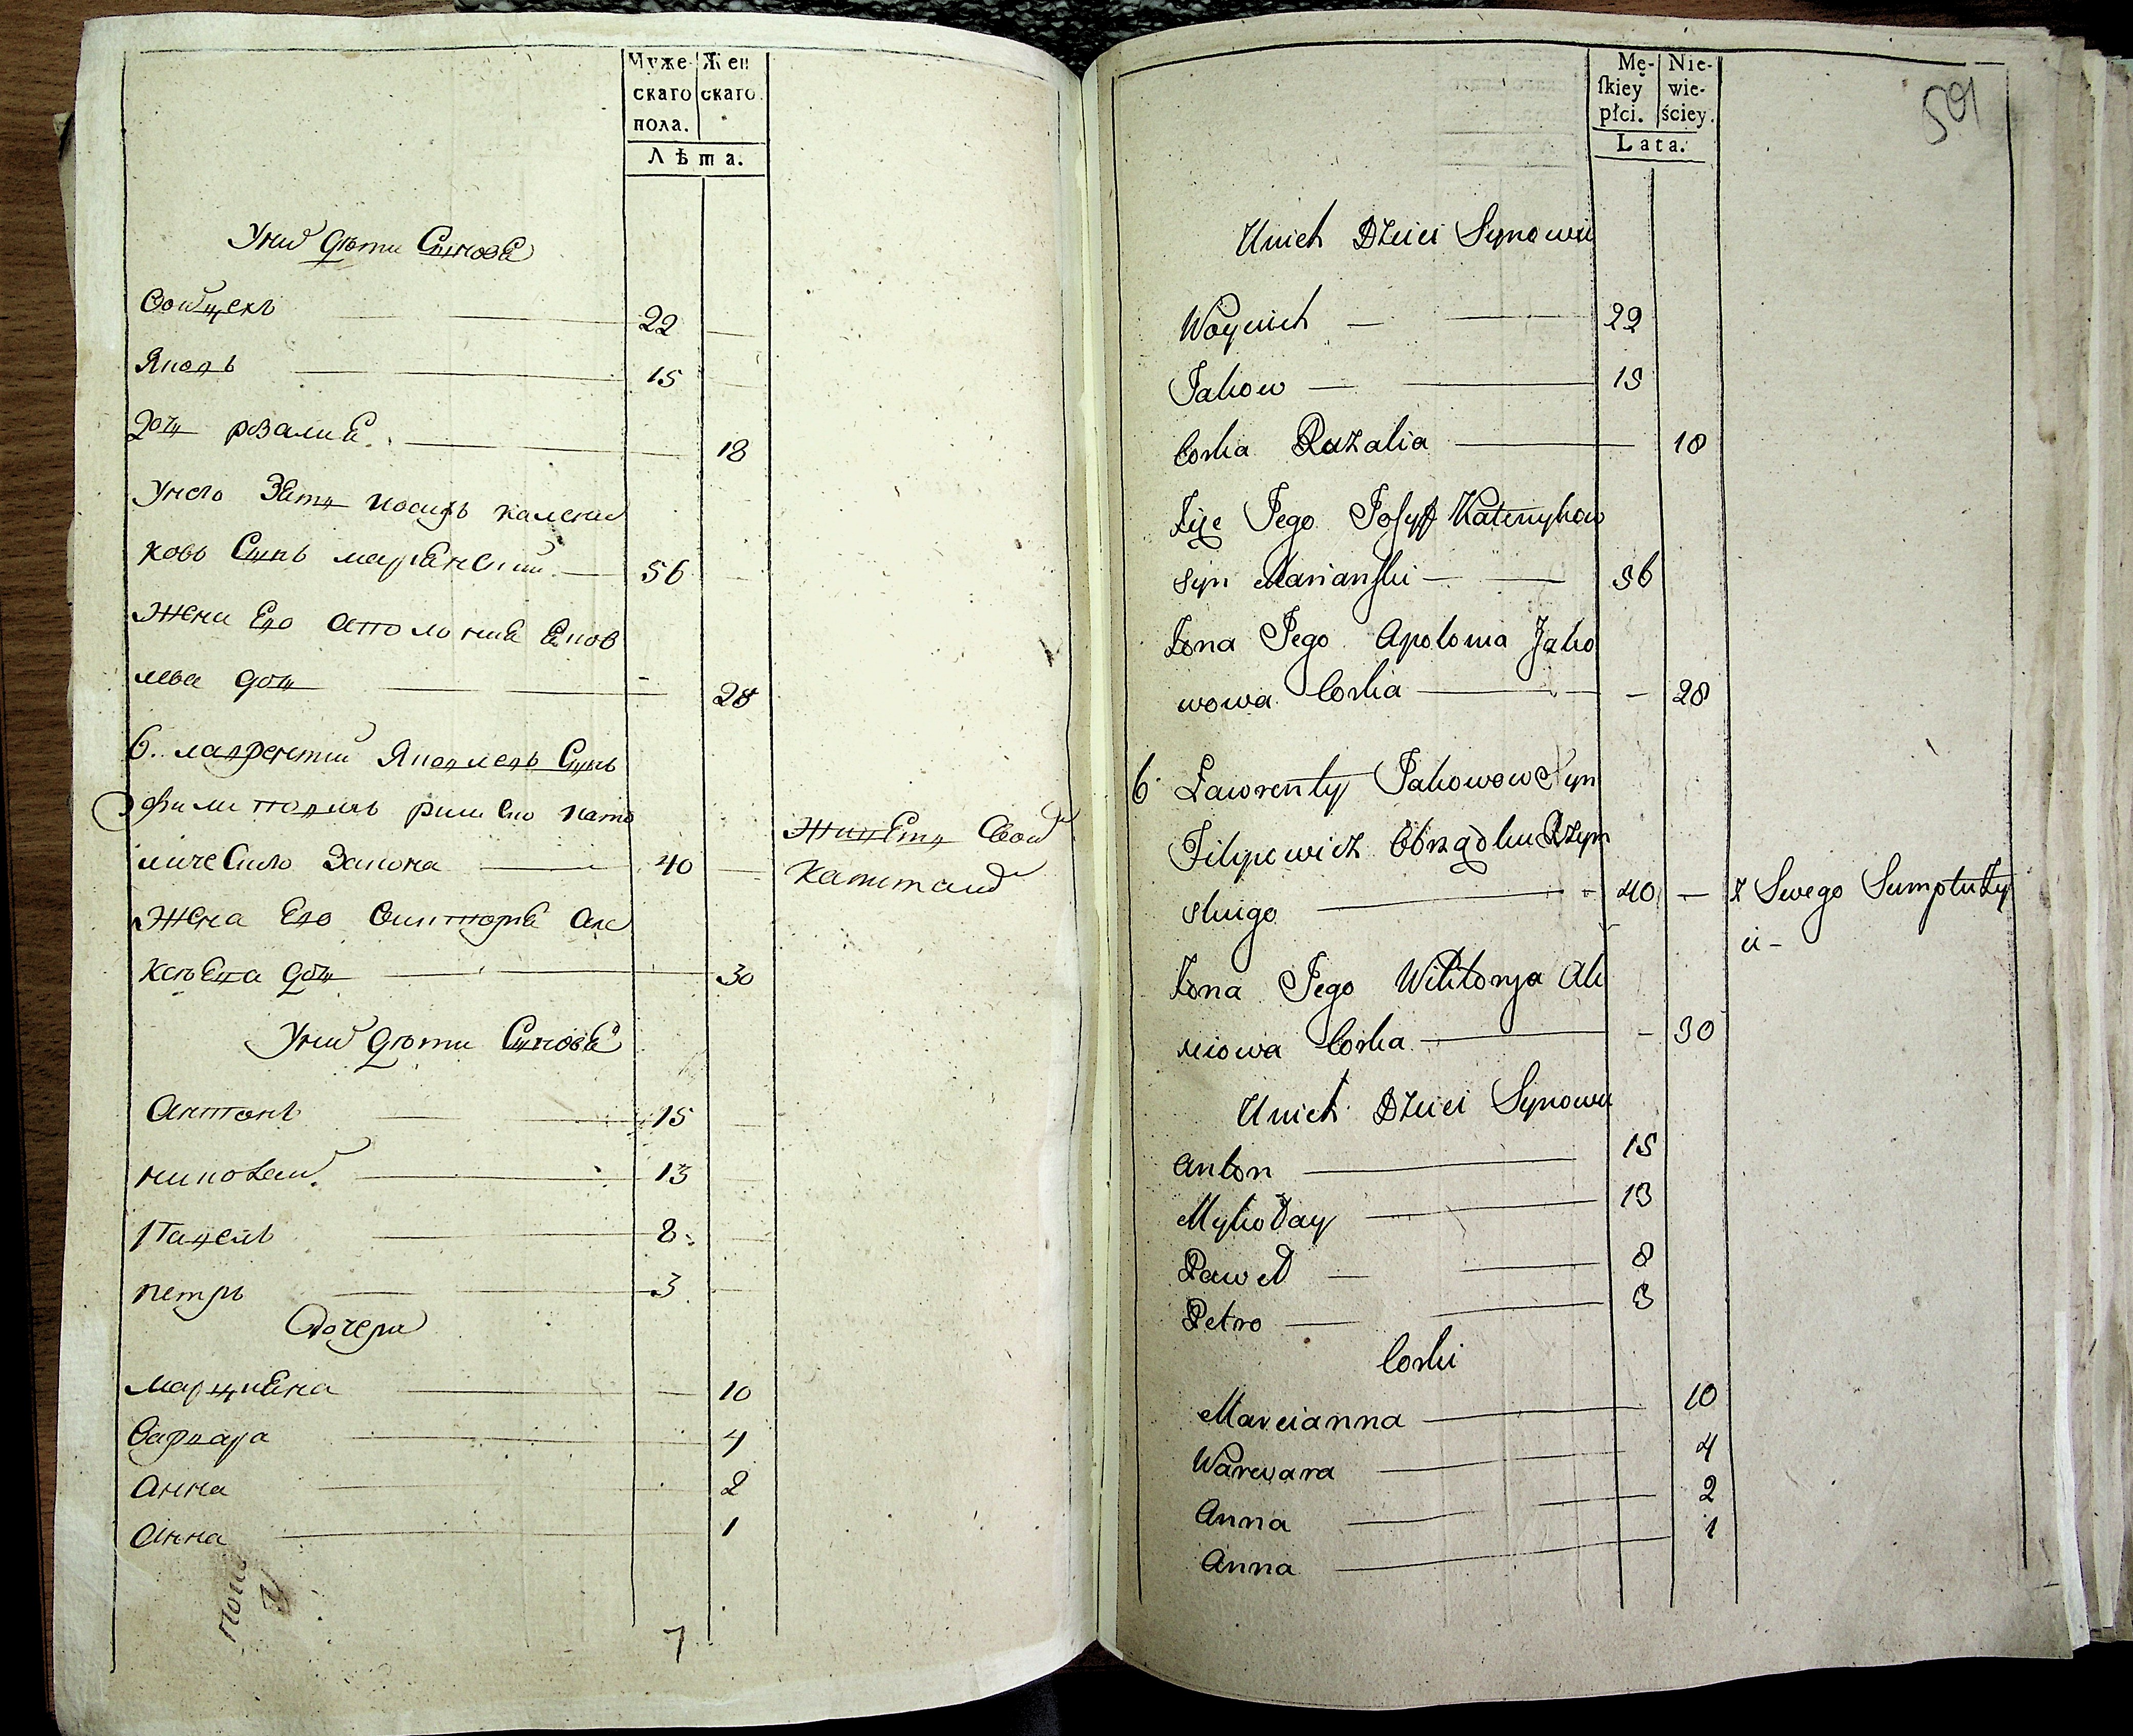 Муже-
скаго
пола.
Жен
скаго.
Лѣта.
Уних дѣти Синовя
Войцехъ 22
Яковъ 15
Дочь розалия 18
Унего Зять иосифъ каленик
ковъ Синъ марянский 56
Жена Его аполония яков
лева дочь 28
6. лаврентий Яковлевъ Синъ
филиповичъ римско като
лическаго Закона 40
Живетъ Свои
Капитали
Жена Его виктория але
ксѣева дочь 30
Уних дѣти Синовя
Антонъ 15
николай 13
Павелъ 8
петръ 3
Дочери
марцияна 10
варвара 4
анна 2
анна 1
7
Mę-
ſkiey
płci.
Nie-
wie-
ściey.
Lata.
501
Unich Dzieci Synowie
Woyciech 22
Jakow 15
Corka Rozalia 18
Zięc Jego Josyff Katenykow
syn Marianski 56
Żona Jego Apolonia Jako
wowa Corka 28
6 Ławrenty Jakowow Syn
Filipowicz Obrządku Rzym
skiego 40 z Swego Sumptu ży
ie-
Żona Jego Wiktorya Ale
xiowa Corka 30
Unich Dzieci Synowie
Anton 15
Mykołay 13
Paweł 8
Petro 3
Corki
Marcianna 10
Warwara 4
Anna 2
Anna 1